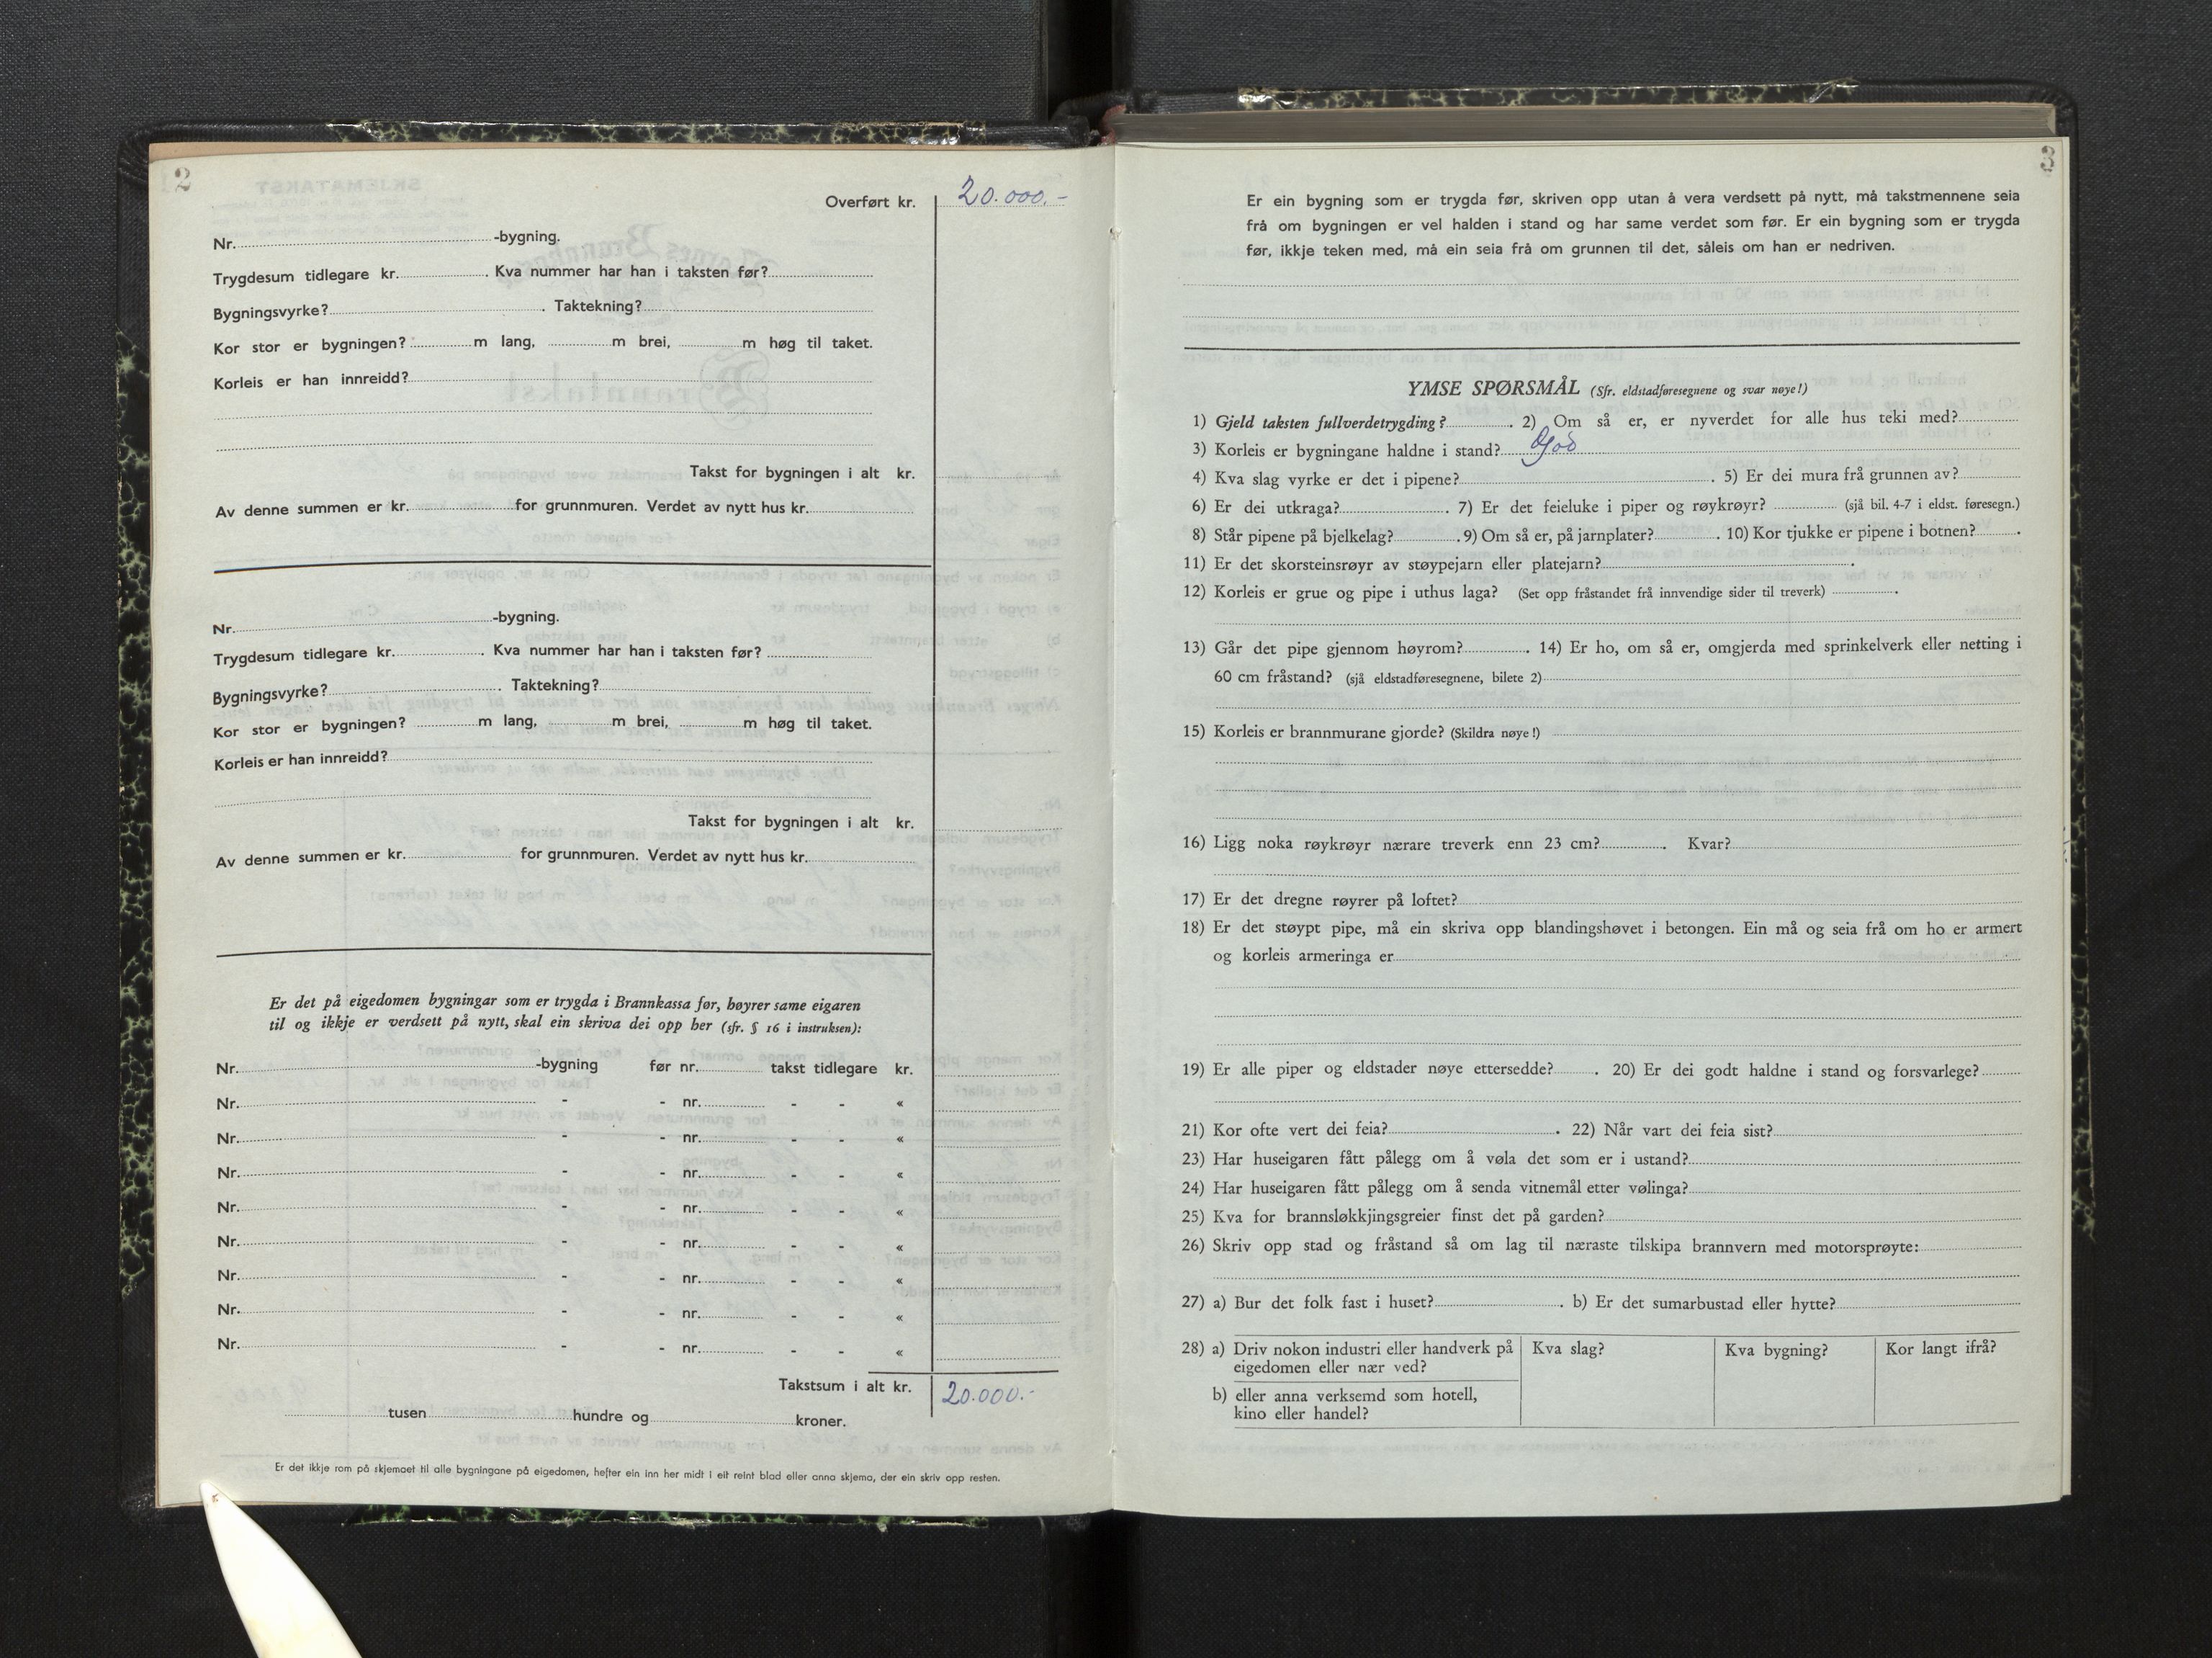 2
Overført kr. 20.000.-
Nr. -bygning.
Trygdesum tidlegare kr. . Kva nummer har han i taksten før?
Bygningsvyrke? . Taktekning?
Kor stor er bygningen? m lang, m brei, m høg til taket.
Korleis er han innreidd?
Takst for bygningen i alt kr.
Av denne summen er kr. for grunnmuren. Verdet av nytt hus kr.
Nr. -bygning.
Trygdesum tidlegare kr. . Kva nummer har han i taksten før?
Bygningsvyrke? . Taktekning?
Kor stor er bygningen? m lang, m brei, m høg til taket.
Korleis er han innreidd?
Takst for bygningen i alt kr.
Av denne summen er kr. for grunnmuren. Verdet av nytt hus kr.
Er det på eigedomen bygningar som er trygda i Brannkassa før, høyrer same eigaren
til og ikkje er verdsett på nytt, skal ein skriva dei opp her (sfr. § 16 i instruksen):
Nr. -bygning før nr. takst tidlegare kr.
Nr. - - nr. - - «
Nr. - - nr. - - «
Nr. - - nr. - - «
Nr. - - nr. - - «
Nr. - - nr. - - «
Nr. - - nr. - - «
Nr. - - nr. - - «
Nr. - - nr. - - «
Takstsum i alt kr. 20.000.-
tusen hundre og kroner.
Er det ikkje rom på skjemaet til alle bygningane på eigedomen, hefter ein inn her midt i eit reint blad eller anna skjema, der ein skriv opp resten.
3
Er ein bygning som er trygda før, skriven opp utan å vera verdsett på nytt, må takstmennene seia
frå om bygningen er vel halden i stand og har same verdet som før. Er ein bygning som er trygda
før, ikkje teken med, må ein seia frå om grunnen til det, såleis om han er nedriven.
YMSE SPØRSMÅL (Sfr. eldstadføresegnene og svar nøye!)
1) Gjeld taksten fullverdetrygding? . 2) Om så er, er nyverdet for alle hus teki med?
3) Korleis er bygningane haldne i stand? God
4) Kva slag vyrke er det i pipene? . 5) Er dei mura frå grunnen av?
6) Er dei utkraga? . 7) Er det feieluke i piper og røykrøyr? (sjå bil. 4-7 i eldst. føresegn.)
8) Står pipene på bjelkelag? . 9) Om så er, på jarnplater? . 10) Kor tjukke er pipene i botnen? .
11) Er det skorsteinsrøyr av støypejarn eller platejarn? .
12) Korleis er grue og pipe i uthus laga? (Set opp fråstandet frå innvendige sider til treverk) .
13) Går det pipe gjennom høyrom? . 14) Er ho, om så er, omgjerda med sprinkelverk eller netting i
60 cm fråstand? (sjå eldstadføresegnene, bilete 2)
15) Korleis er brannmurane gjorde? (Skildra nøye!)
16) Ligg noka røykrøyr nærare treverk enn 23 cm? . Kvar?
17) Er det dregne røyrer på loftet?
18) Er det støypt pipe, må ein skriva opp blandingshøvet i betongen. Ein må og seia frå om ho er armert
og korleis armeringa er
19) Er alle piper og eldstader nøye ettersedde? . 20) Er dei godt haldne i stand og forsvarlege?
21) Kor ofte vert dei feia? . 22) Når vart dei feia sist?
23) Har huseigaren fått pålegg om å vøla det som er i ustand?
24) Har huseigaren fått pålegg om å senda vitnemål etter vølinga?
25) Kva for brannsløkkjingsgreier finst det på garden?
26) Skriv opp stad og fråstand så om lag til næraste tilskipa brannvern med motorsprøyte:
27) a) Bur det folk fast i huset? . b) Er det sumarbustad eller hytte?
28) a) Driv nokon industri eller handverk på Kva slag? Kva bygning? Kor langt ifrå?
eigedomen eller nær ved?
b) eller anna verksemd som hotell,
kino eller handel?